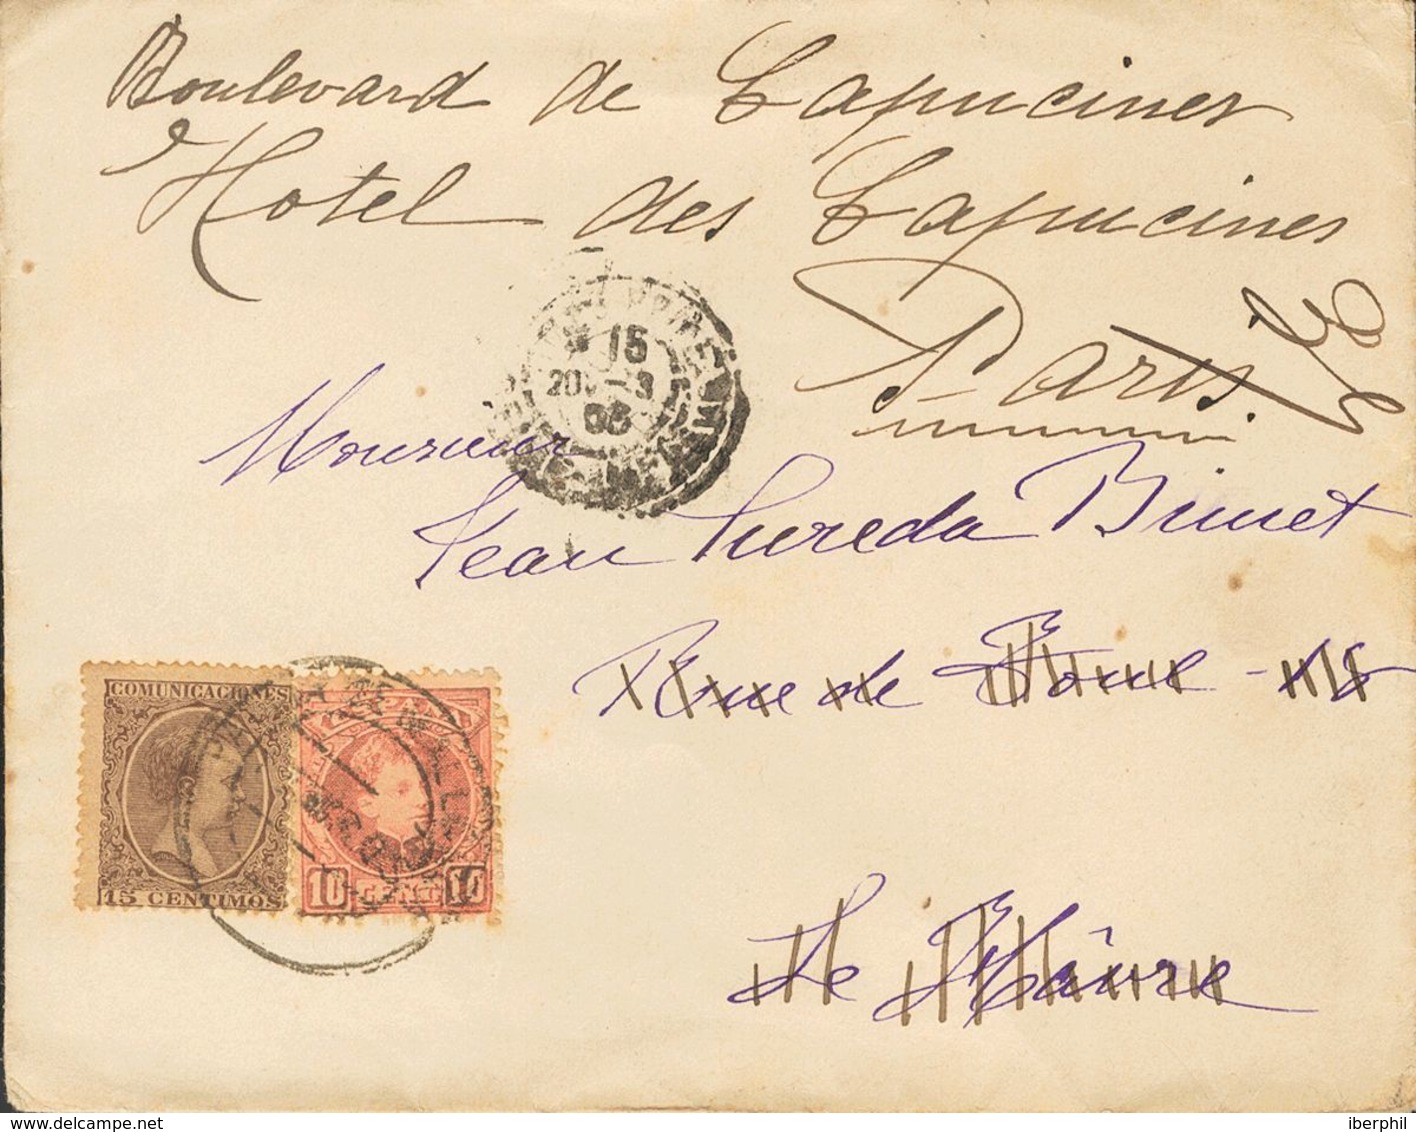 Boulevard de Capucines
Hotel des Capucines
Paris
15
20 - 3
Monsieur
Jean Sureda Bimet
Rue de - 18
COMUNICACIONES
15 CENTIMOS
10 CENT. 10
Le Hâvre
delcampe.net
iberphil